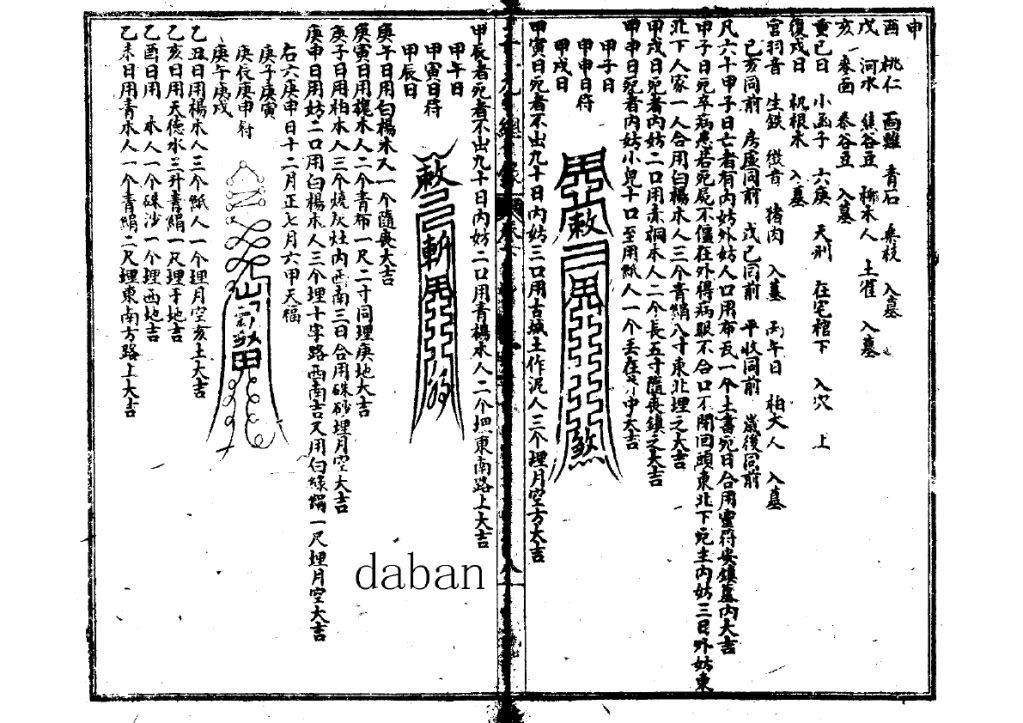 申
酉 桃仁 画雞 青石 桑枝 入墓
戊 河水 焦谷豆 柳木人 土隺 入墓
亥 麥面 黍谷豆 入墓
重巳日 小函子 六庚 天刑 在宅棺下 入穴 上
復戊日 机根木 入墓
宮羽音 生鉄 徴音 猪肉 入墓 丙午日 柏木人 入墓
己亥同前 房虛同前 戊己同前 平收同前 歲後同前
凡六十甲子日亡者有内妨外妨人口用布瓦一个上書死日合用霊符安鎮墓内大吉
甲子日死卒病患若死屍不僵在外得病眼不合口不閉回頭東北下死主内妨三日外妨東
北下人家一人合用白楊木人三个青絹八寸東北埋之大吉
甲戌日死者内妨二口用青桐木人二个長五寸隨喪鎮之大吉
甲申日死者内妨小兒十口至用紙人一个丢在井中大吉
甲子日
甲申日符
甲戌日
甲寅日死者不出九十日内妨三口用古城土作泥人三个埋月空方大吉
甲辰者死者不出九十日内妨二口用青楊木人二个埋東南路上大吉
甲午日
甲寅日符
甲辰日
庚午日用白楊木人一个隨喪大吉
庚寅日用槐木人二个青布一尺二寸同埋庚地大吉
庚子日用柏木人三个燒灰灶内西南三日合用硃砂埋月空大吉
庚申日用妨二口用白楊木人三个埋十字路西南吉又用白線絹一尺埋月空大吉
右六庚申日十二月正七月六甲天福
庚子庚寅
庚辰庚申符
庚午庚戌
乙丑日用楊木人三个紙人一个埋月空亥土大吉
乙亥日用天德水三升青絹一尺埋于地吉
乙酉日用 木人一个硃沙一个埋西地吉
乙未日用青木人一个青絹二尺埋東南方路上大吉
daban